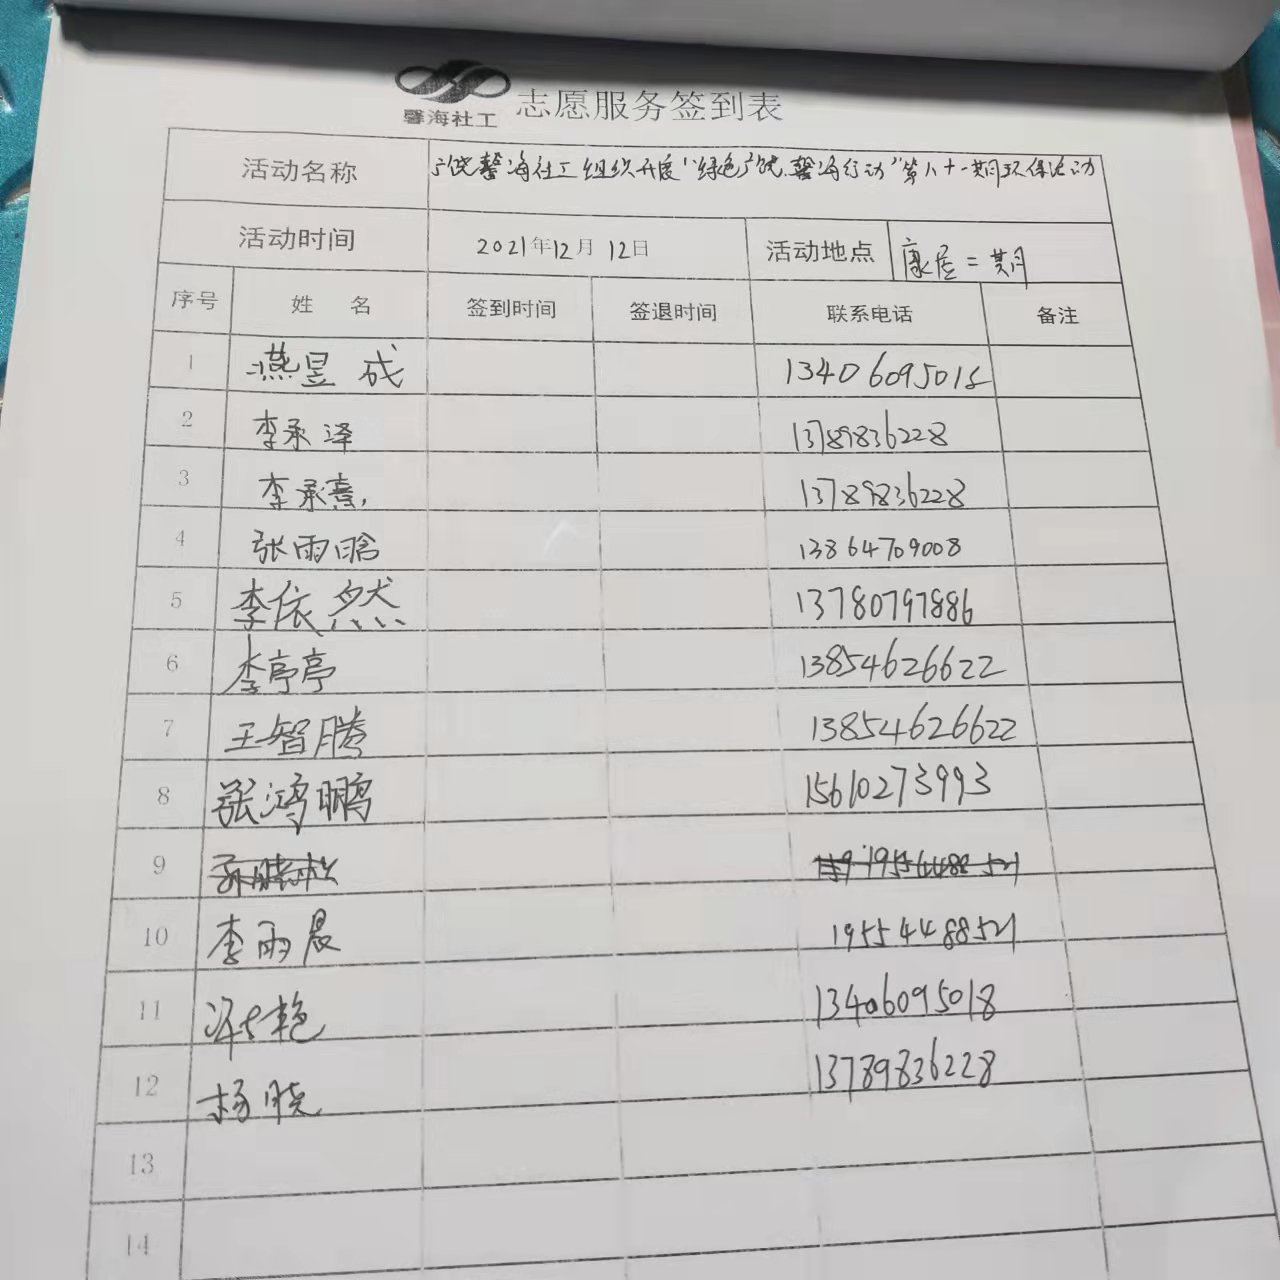 馨海社工 志愿服务签到表
活动名称 广饶馨海社工组织开展"绿色广饶.馨海行动"第八十一期环保活动
活动时间 2021年12月12日 活动地点 康居二期
序号 姓 名 签到时间 签退时间 联系电话 备注
1 燕昱成 13406095018
2 李承泽 13789836228
3 李承熹 13789836228
4 张雨晗 13864709008
5 李依然 13780797886
6 李亭亭 13854626622
7 王智腾 13854626622
8 张鸿鹏 15610273993
9
10 李雨晨 19554488521
11 艳 13406095018
12 杨晓 13789836228
13
14